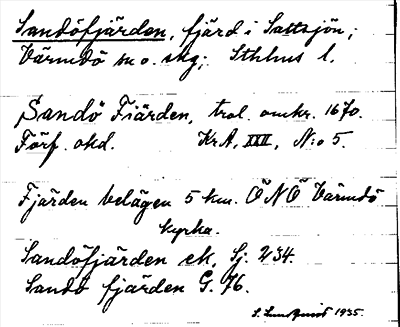 Sandöfjärden, fjärd i Saltsjön;
Värmdö sn o. skg; Sthlms l.
Sandö Fiärden, trol. omkr. 1670.
Förf. okd. KrA, XXX, N:o 5.
Fjärden belägen 5 km. ÖNÖ Värmdö
kyrka.
Sandöfjärden ek. Sj. 234.
Sandö fjärden G. 76.
S. 1935.